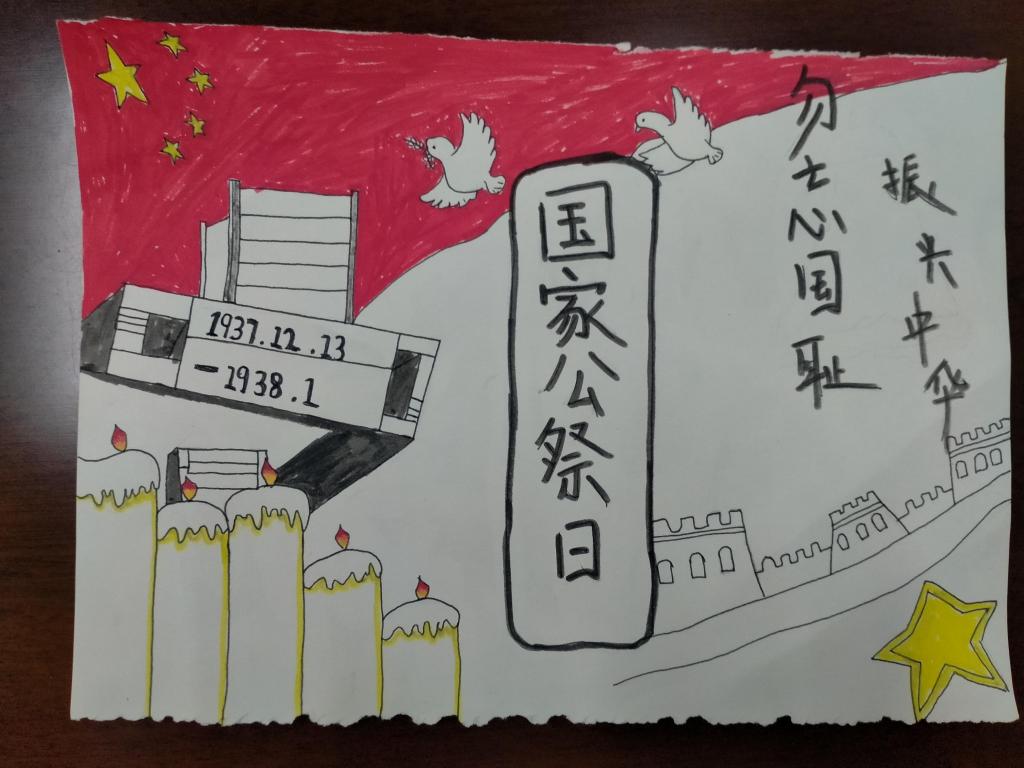 1937.12.13
-1938.1
国家公祭日
勿忘国耻
振兴中华